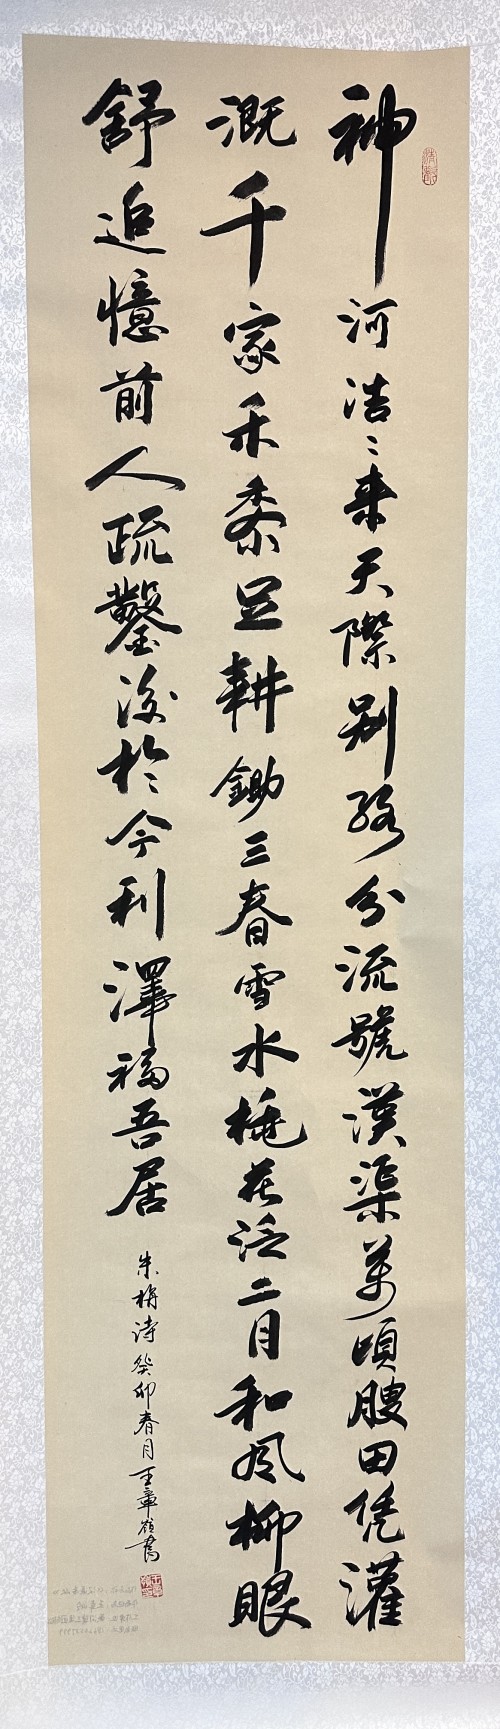 神河浩〻来天際别路分流號漢渠萬頃腴田凭灌
溉千家禾黍足耕鋤三春雪水桃花泛二月和风柳眼
舒追憶前人疏鑿後於今利澤福吾居
朱栴詩癸卯春月王章嶺書